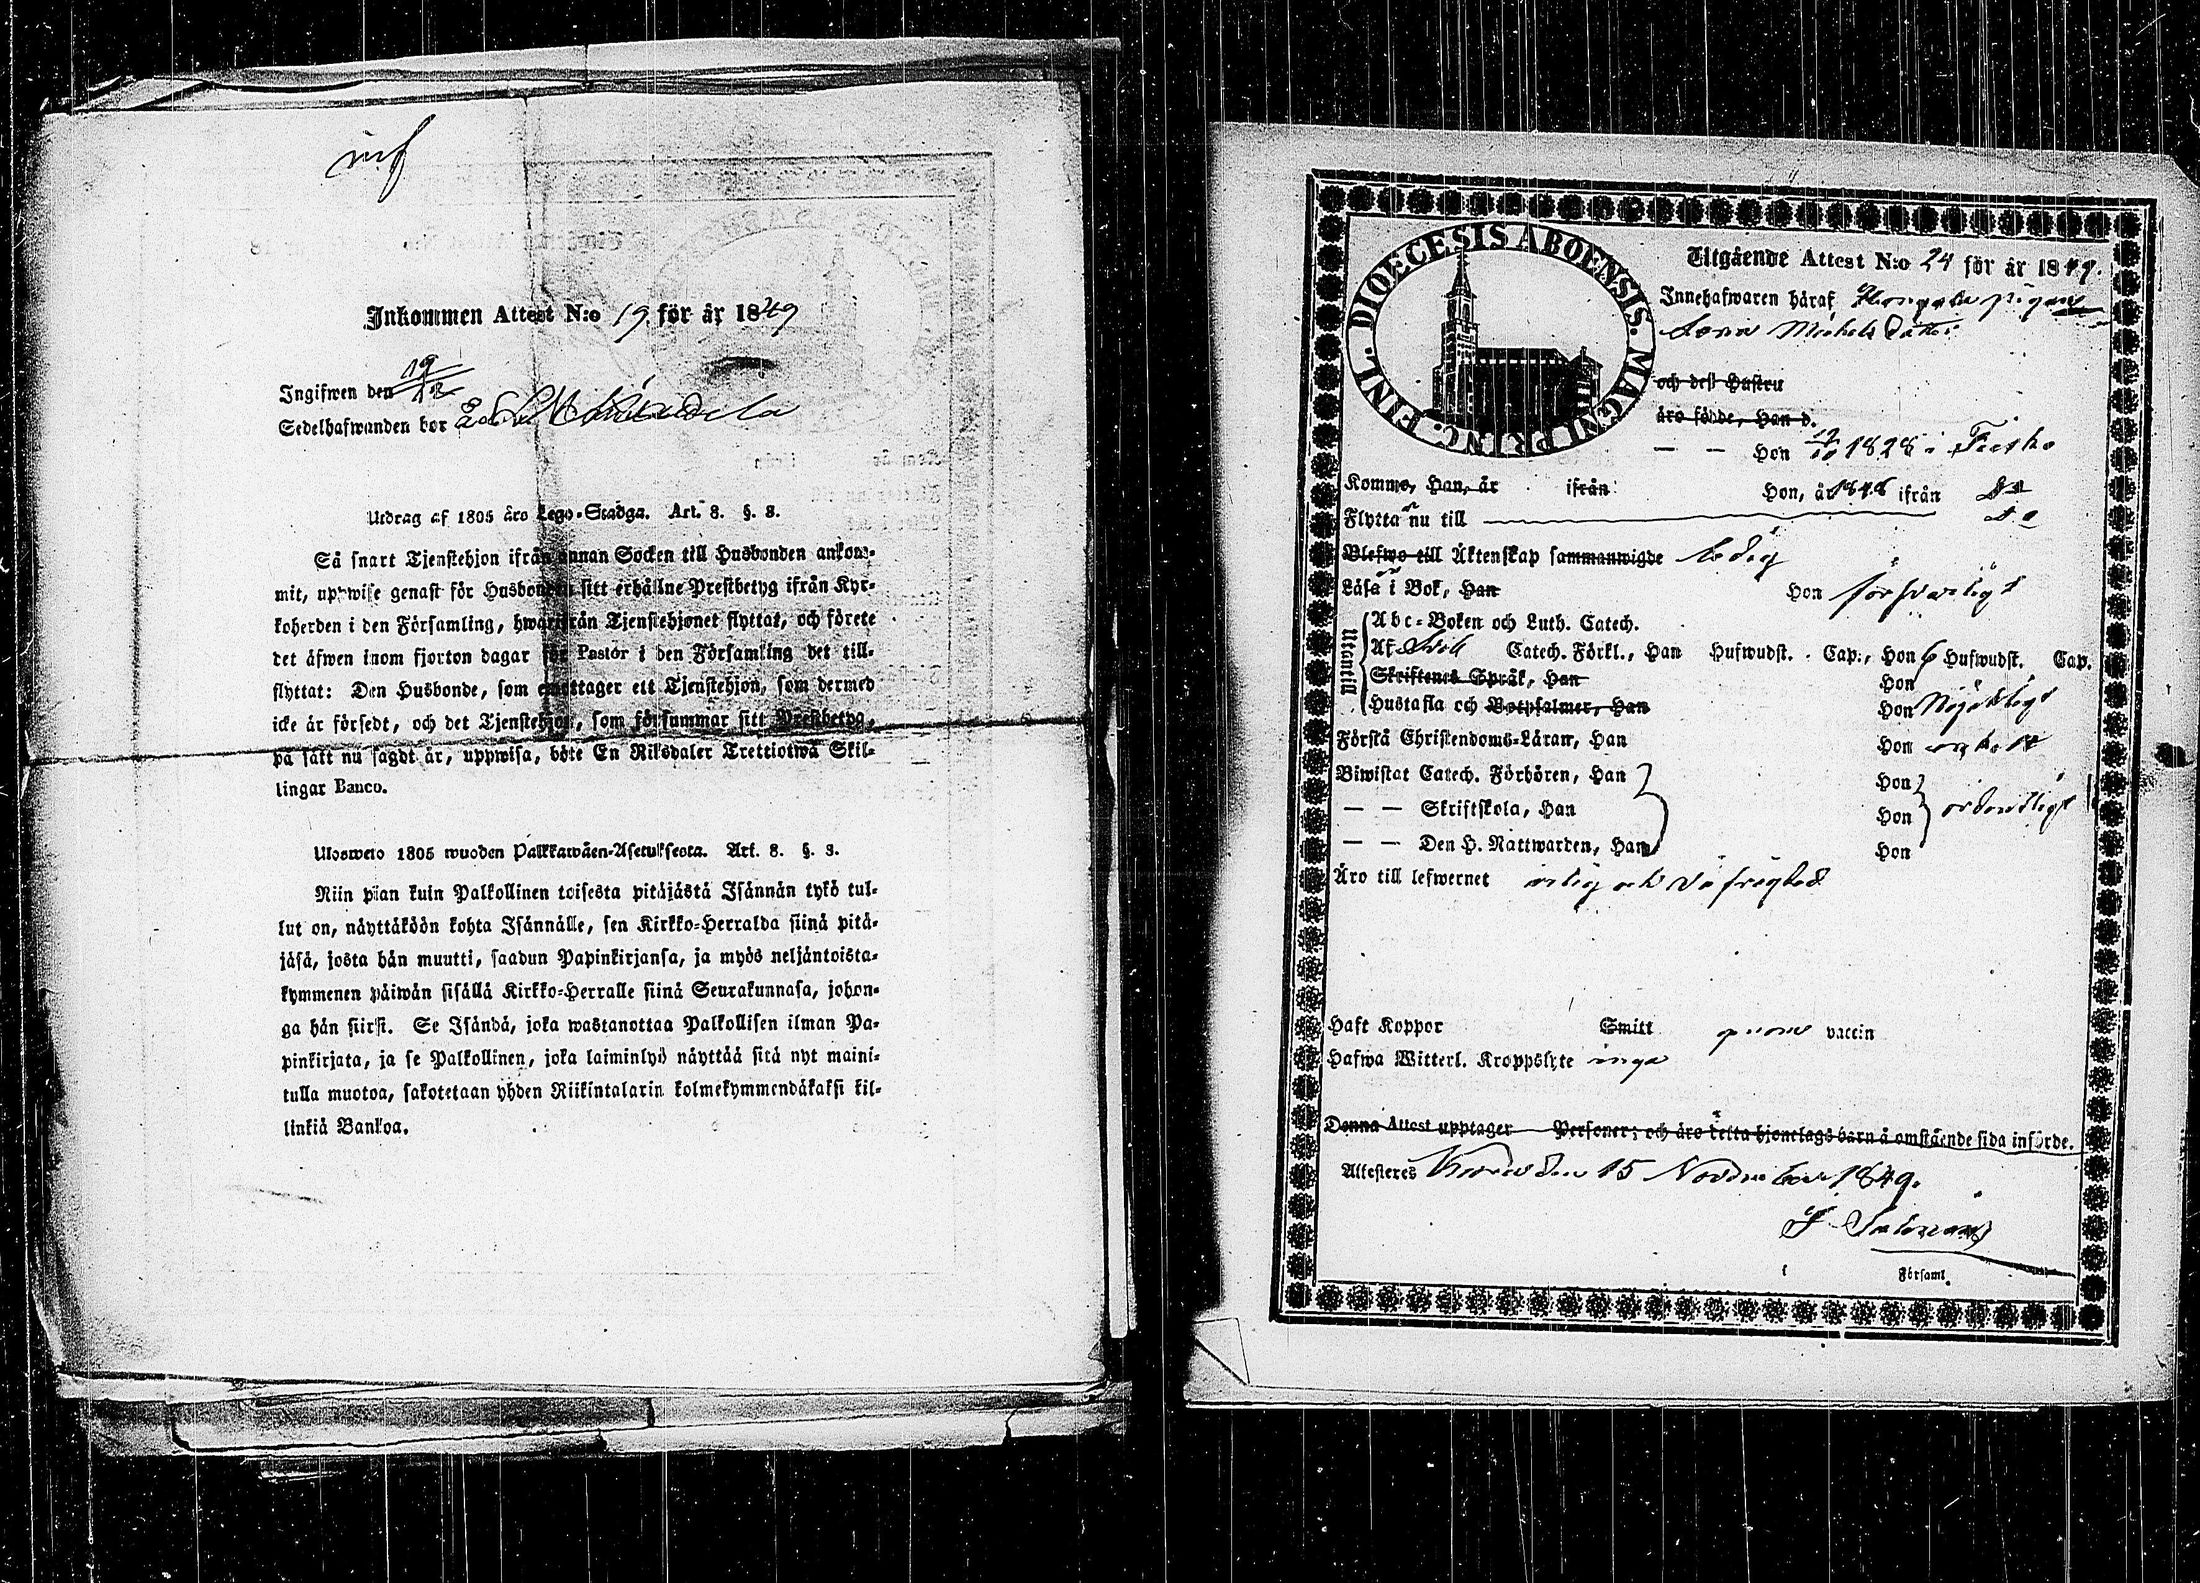 Inkommen Attest N:o 19. för år 1849
Ingifwen den 19/12
Sedelhafwanden bor
Utdrag af 1805 års Lego-Stadga. Art. 8. §. 8.
Så snart Tjenstehjon ifrån annan Socken till Husbonden ankom-
mit, uppwise genast för Husbonden sitt erhållne Prestbetyg ifrån Kyr-
koherden i den Församling, hwarifrån Tjenstehjonet flyttat, och förete
det äfwen inom fjorton dagar för Pastor i den Församling det till-
flyttat: Den Husbonde, som emottager ett Tjenstehjon, som dermed
icke är försedt, och det Tjenstehjon, som försummar sitt Prestbetyg,
på sätt nu sagdt är, uppwisa, böte En Riksdaler Trettiotwå Skil-
lingar Banco.
Ulosweto 1805 wuoden Palkkawäen-Asetuksesta. Art. 8. §. 8.
Niin pian kuin Palkollinen toisesta pitäjästä Isännän tykö tul-
lut on, näyttäköön kohta Isännälle, sen Kirkko-Herralda siinä pitä-
jäsä, josta hän muutti, saadun Papinkirjansa, ja myös neljäntoista-
kymmenen päiwän sisällä Kirkko-Herralle siinä Seurakunnasa, johon-
ga hän siirsi. Se Isändä, joka wastanottaa Palkollisen ilman Pa-
pinkirjata, ja se Palkollinen, joka laiminlyö näyttää sitä nyt maini-
tulla muotoa, sakotetaan yhden Riikintalarin kolmekymmendäkaksi kil-
linkiä Bankoa.
FINL. DIOECESIS ABOENSIS. MAGNI PRINC.
Utgående Attest N:o 24 för år 1849.
Innehafwaren häraf pigan
Michelsdotter
och dess Hustru
äro födde, Han d.
— — Hon 1828 i
Kommo, Han, år ifrån Hon, år 1848 ifrån
Flytta nu till
Blefwo till Äktenskap sammanwigde ledig
Läsa i Bok, Han Hon försvarligt
Utantill
Abc-Boken och Luth. Catech.
Af Catech. Förkl., Han Hufwudst. Cap., Hon 6 Hufwudst. Cap.
Skriftenes Språk, Han Hon
Hustafla och Botpsalmer, Han Hon Nöjaktigt
Förstå Christendoms-Läran, Han Hon enkelt
Biwistat Catech. Förhören, Han Hon
— — Skriftskola, Han Hon ordentligt
— — Den H. Nattwarden, Han Hon
Äro till lefwernet ärlig och välfrägdad
Haft Koppor Smitt genom vaccin
Hafwa Witterl. Kroppslyte inga
Denna Attest upptager Personer; och äro detta hjonelags barn å omstående sida införde.
Attesteres den 15 November 1849.
Församl.